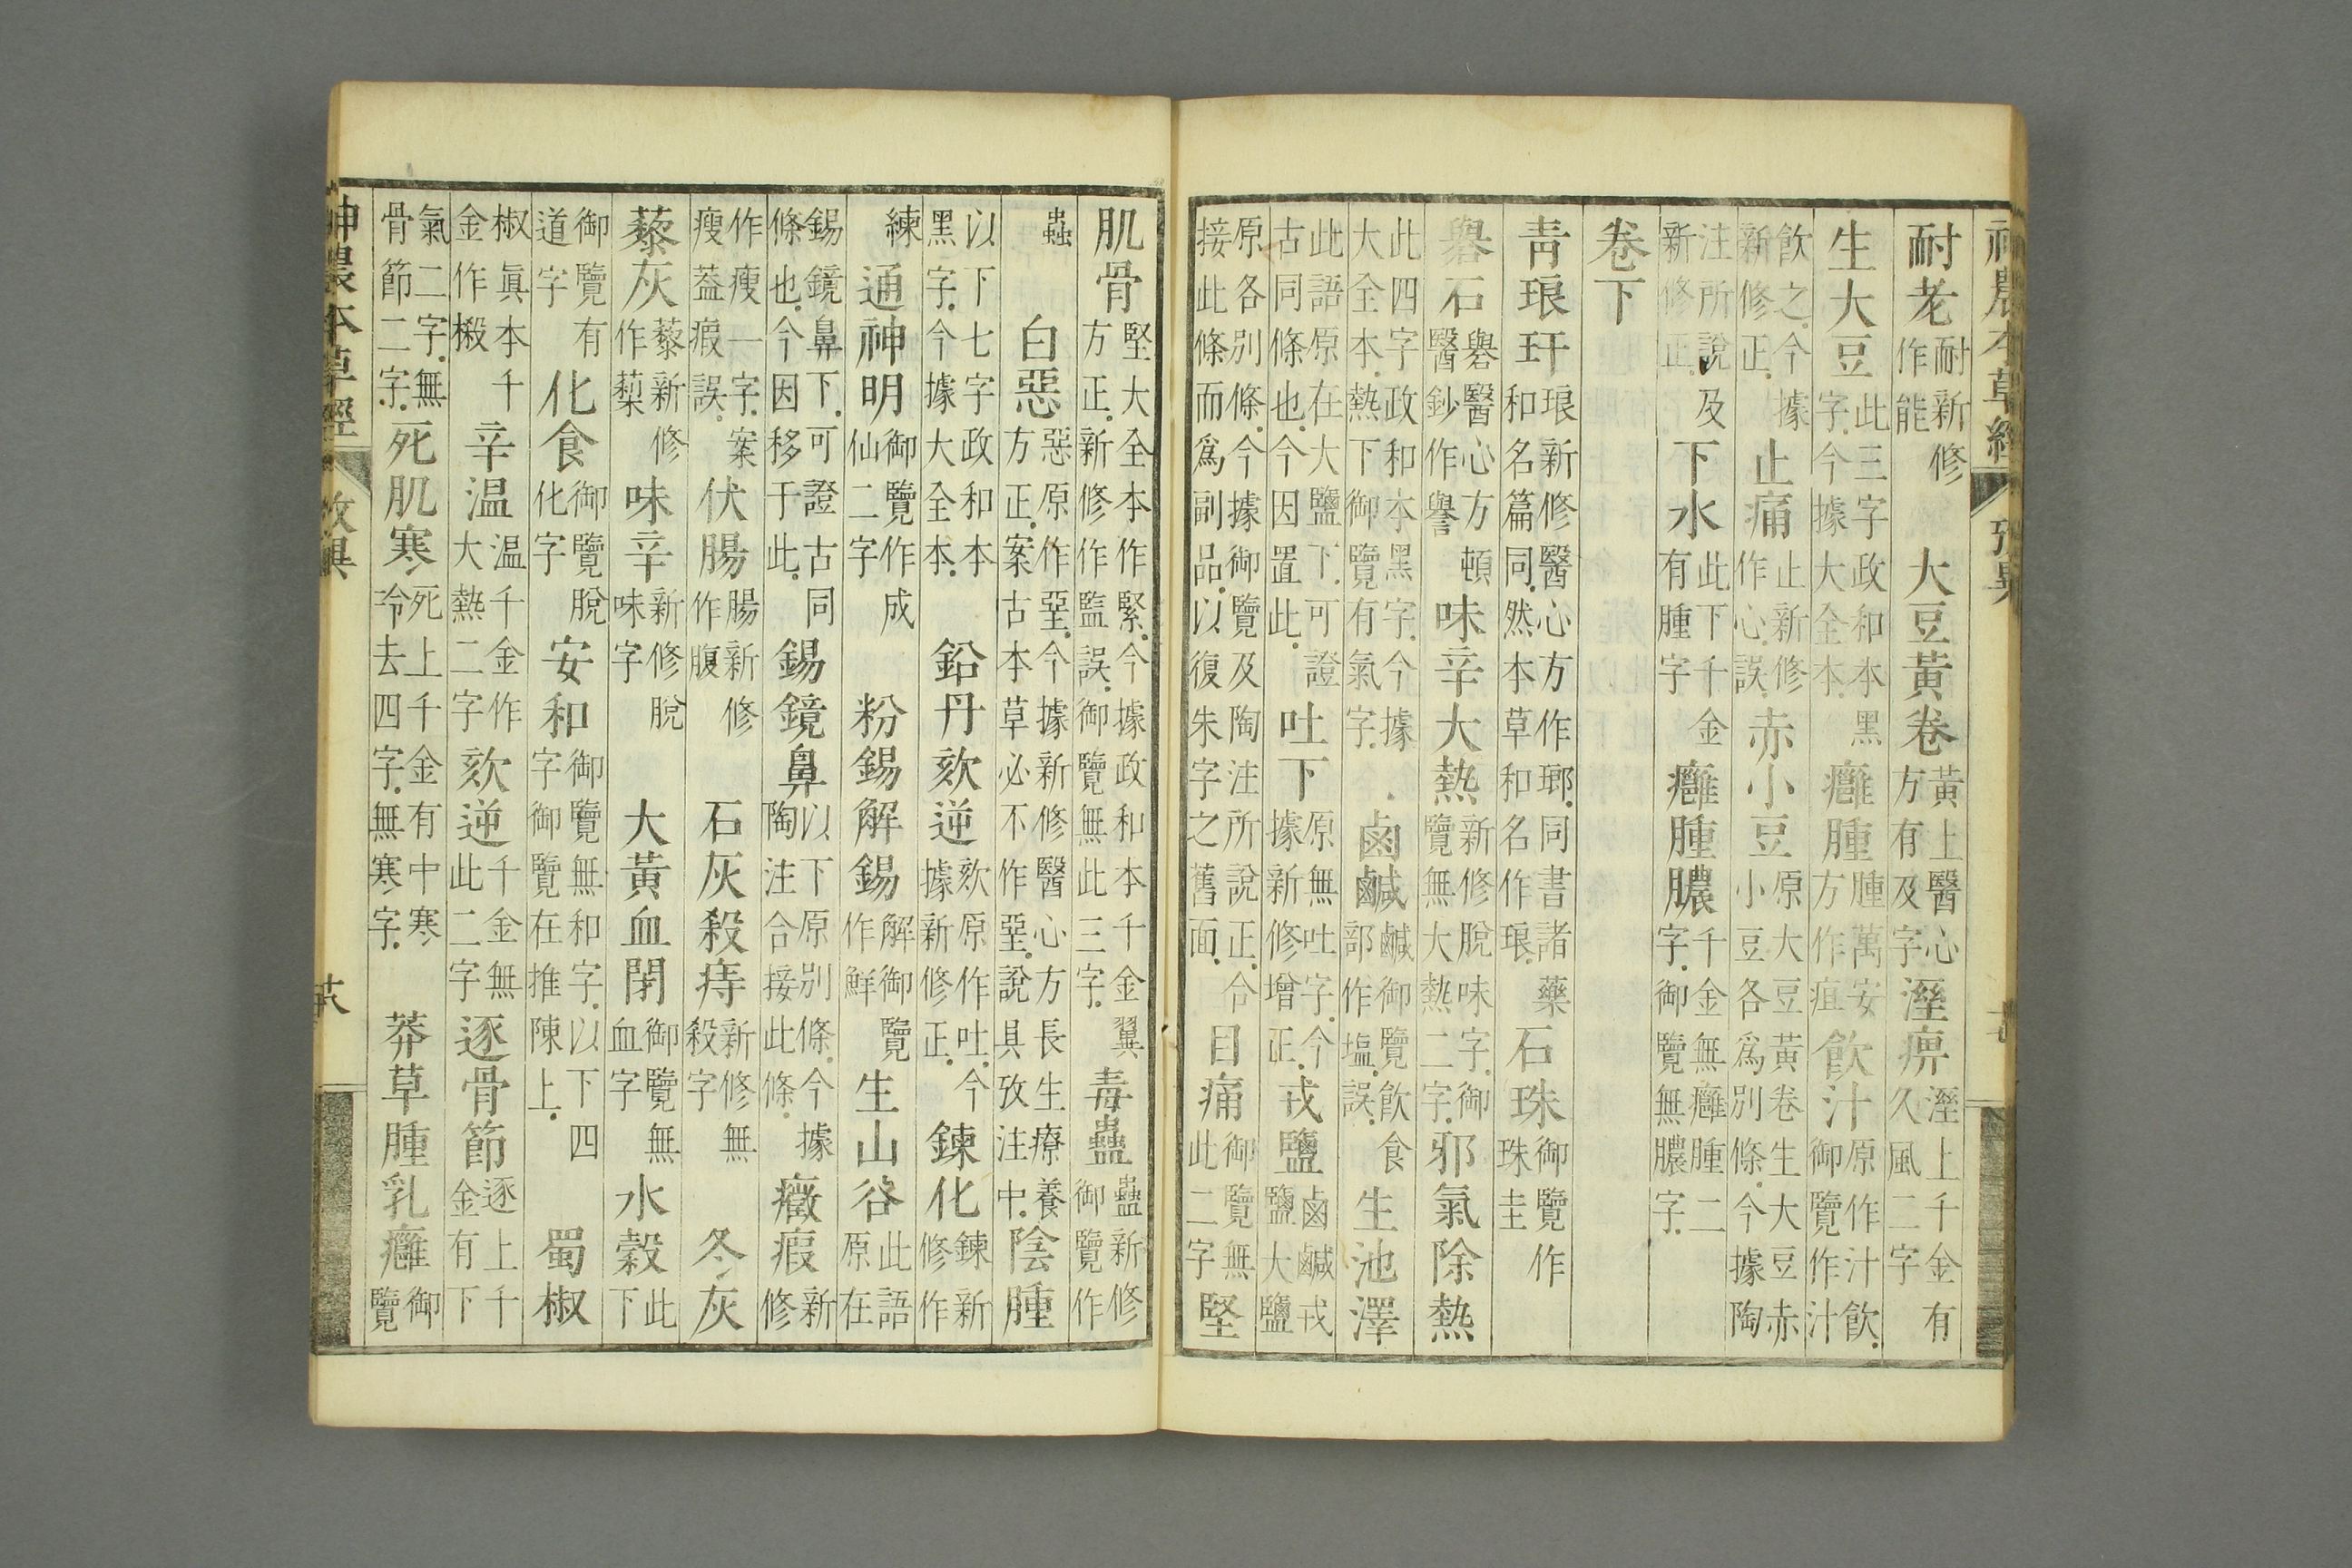 神農本草經 攷異
耐老耐新修作能 大豆黃卷黃上醫心方有及字溼痹溼上千金有久風二字
生大豆此三字政和本黑字今據大全本癰腫腫萬安方作疽飮汁原作汁飮御覽作汁
飮之今據新修正止痛止新修作心誤赤小豆原大豆黃卷生大豆赤小豆各爲別條今據陶
注所說及新修正下水此下千金有腫字癰腫膿千金無癰腫二字御覽無膿字
卷下
靑琅玕琅新修醫心方作瑯同書諸藥和名篇同然本草和名作琅石珠御覽作珠圭
礜石礜醫心方頓醫鈔作譽味辛大熱新修脫味字御覽無大熱二字邪氣除熱
此四字政和本黑字今據大全本熱下御覽有氣字鹵鹹鹹御覽飮食部作塩誤生池澤
此語原在大鹽下可證古同條也今因置此吐下原無吐字今據新修增正戎鹽鹵鹹戎鹽大鹽
原各別條今據御覽及陶注所說正合接此條而爲副品以復朱字之舊面目痛御覽無此二字堅
肌骨堅大全本作緊今據政和本千金翼方正新修作監誤御覽無此三字毒蠱蠱新修御覽作
蟲白惡惡原作堊今據新修醫心方長生療養方正案古本草必不作堊說具攷注中陰腫
以下七字政和本黑字今據大全本鉛丹欬逆欬原作吐今據新修正鍊化鍊新修作
練通神明御覽作成仙二字粉錫解錫解御覽作鮮生山谷此語原在
錫鏡鼻下可證古同條也今因移于此錫鏡鼻以下原別條今據陶注合接此條癥瘕新修
作瘦一字案瘦蓋瘕誤伏腸腸新修作腹石灰殺痔新修無殺字冬灰
藜灰藜新修作蔾味辛新修脫味字大黃血閉御覽無血字水穀此下
御覽有道字化食御覽脫化字安和御覽無和字以下四字御覽在推陳上蜀椒
椒眞本千金作樧辛温温千金作大熱二字欬逆千金無此二字逐骨節逐上千金有下
氣二字無骨節二字死肌寒死上千金有中寒冷去四字無寒字莽草腫乳癰御覽
神農本草經 攷異 六